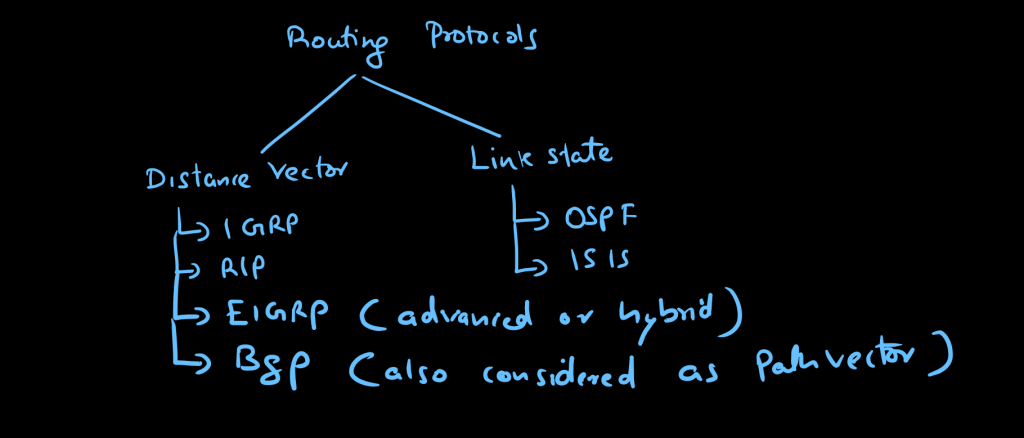 Routing Protocols
Distance Vector
Link state
IGRP
RIP
EIGRP (advanced or hybrid)
BgP (also considered as Path vector)
OSPF
ISIS